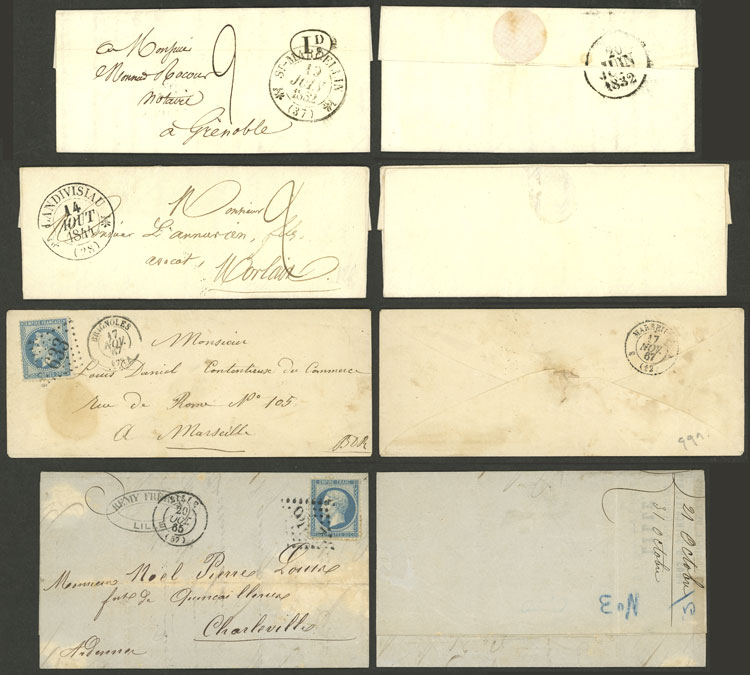 à Monsieur
notaire
à Grenoble
9
1D
ST-MARCELLIN
19
JUIN
1832
(37)
20
JUIN
1832
LANDIVISIAU
14
AOUT
1844
(28)
Monsieur
Lannurien, fils,
avocat,
Morlaix
EMPIRE FRANÇAIS
BRIGNOLES
17
NOV.
67
Monsieur
Louis Daniel Contentieux du Commerce
rue de Rome N° 105
A Marseille
BDR
MARSEILLE
17
NOV.
67
REMY FRÈ
LILLE
LILLE
20
OCT.
65
(57)
EMPIRE FRANC
Messieurs Noël Pierre Louis
de Quincaillerie
Charleville
Ardennes
21 Octobre
31 Octobre
No 3